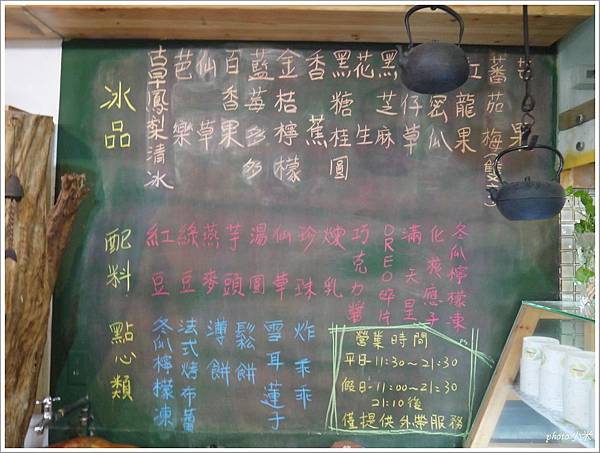 冰品
芒果
蕃茄梅(雙)
紅龍果
蜜瓜
仔草
黑芝麻
花生
黑糖桂圓
香蕉
金桔檸檬
藍莓多多
百香果
仙草
芭樂
古早鳳梨清冰
配料
冬瓜檸檬凍
化核應子
滿天星
OREO碎片
巧克力醬
煉乳
珍珠
仙草
湯圓
芋頭
燕麥
綠豆
紅豆
點心類
炸乖乖
雪耳蓮子
鬆餅
薄餅
法式烤布蕾
冬瓜檸檬凍
營業時間
平日-11:30~21:30
假日-11:00~21:30
21:10後
僅提供外帶服務
photo 小米